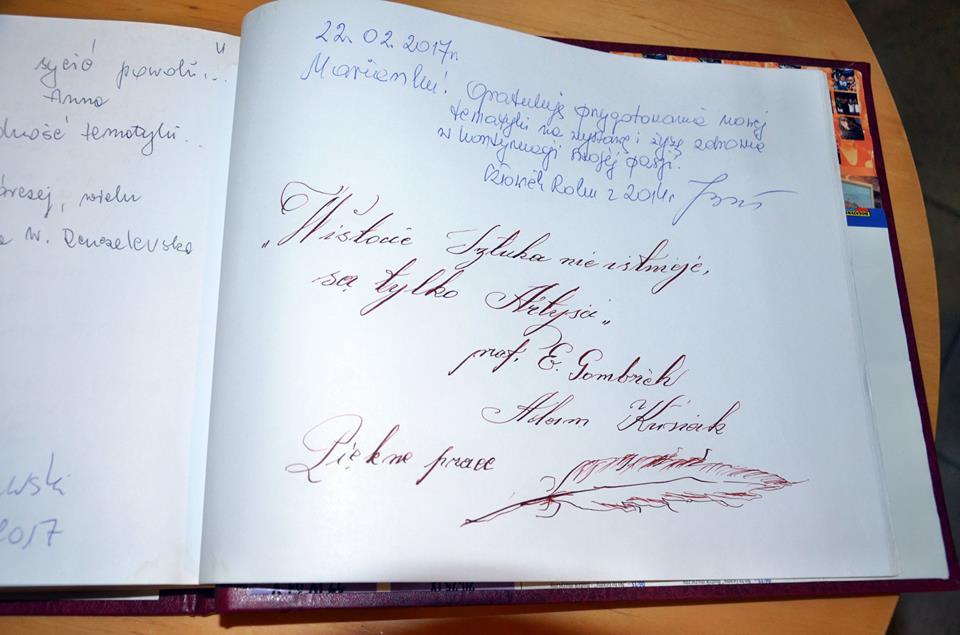 sycić powoli...
Anna
tematyki...
wielu
W.
wski
2017
22.02.2017r.
Marzenko! Gratuluję przygotowania nowej
tematyki na wystawę i życzę zdrowia
w kontynuacji Twojej pasji!
Człowiek Roku z 2014r.
„W istocie Sztuka nie istnieje,
są tylko Artyści„
prof. E. Gombrich
Adam Kusiak
Piękne prace